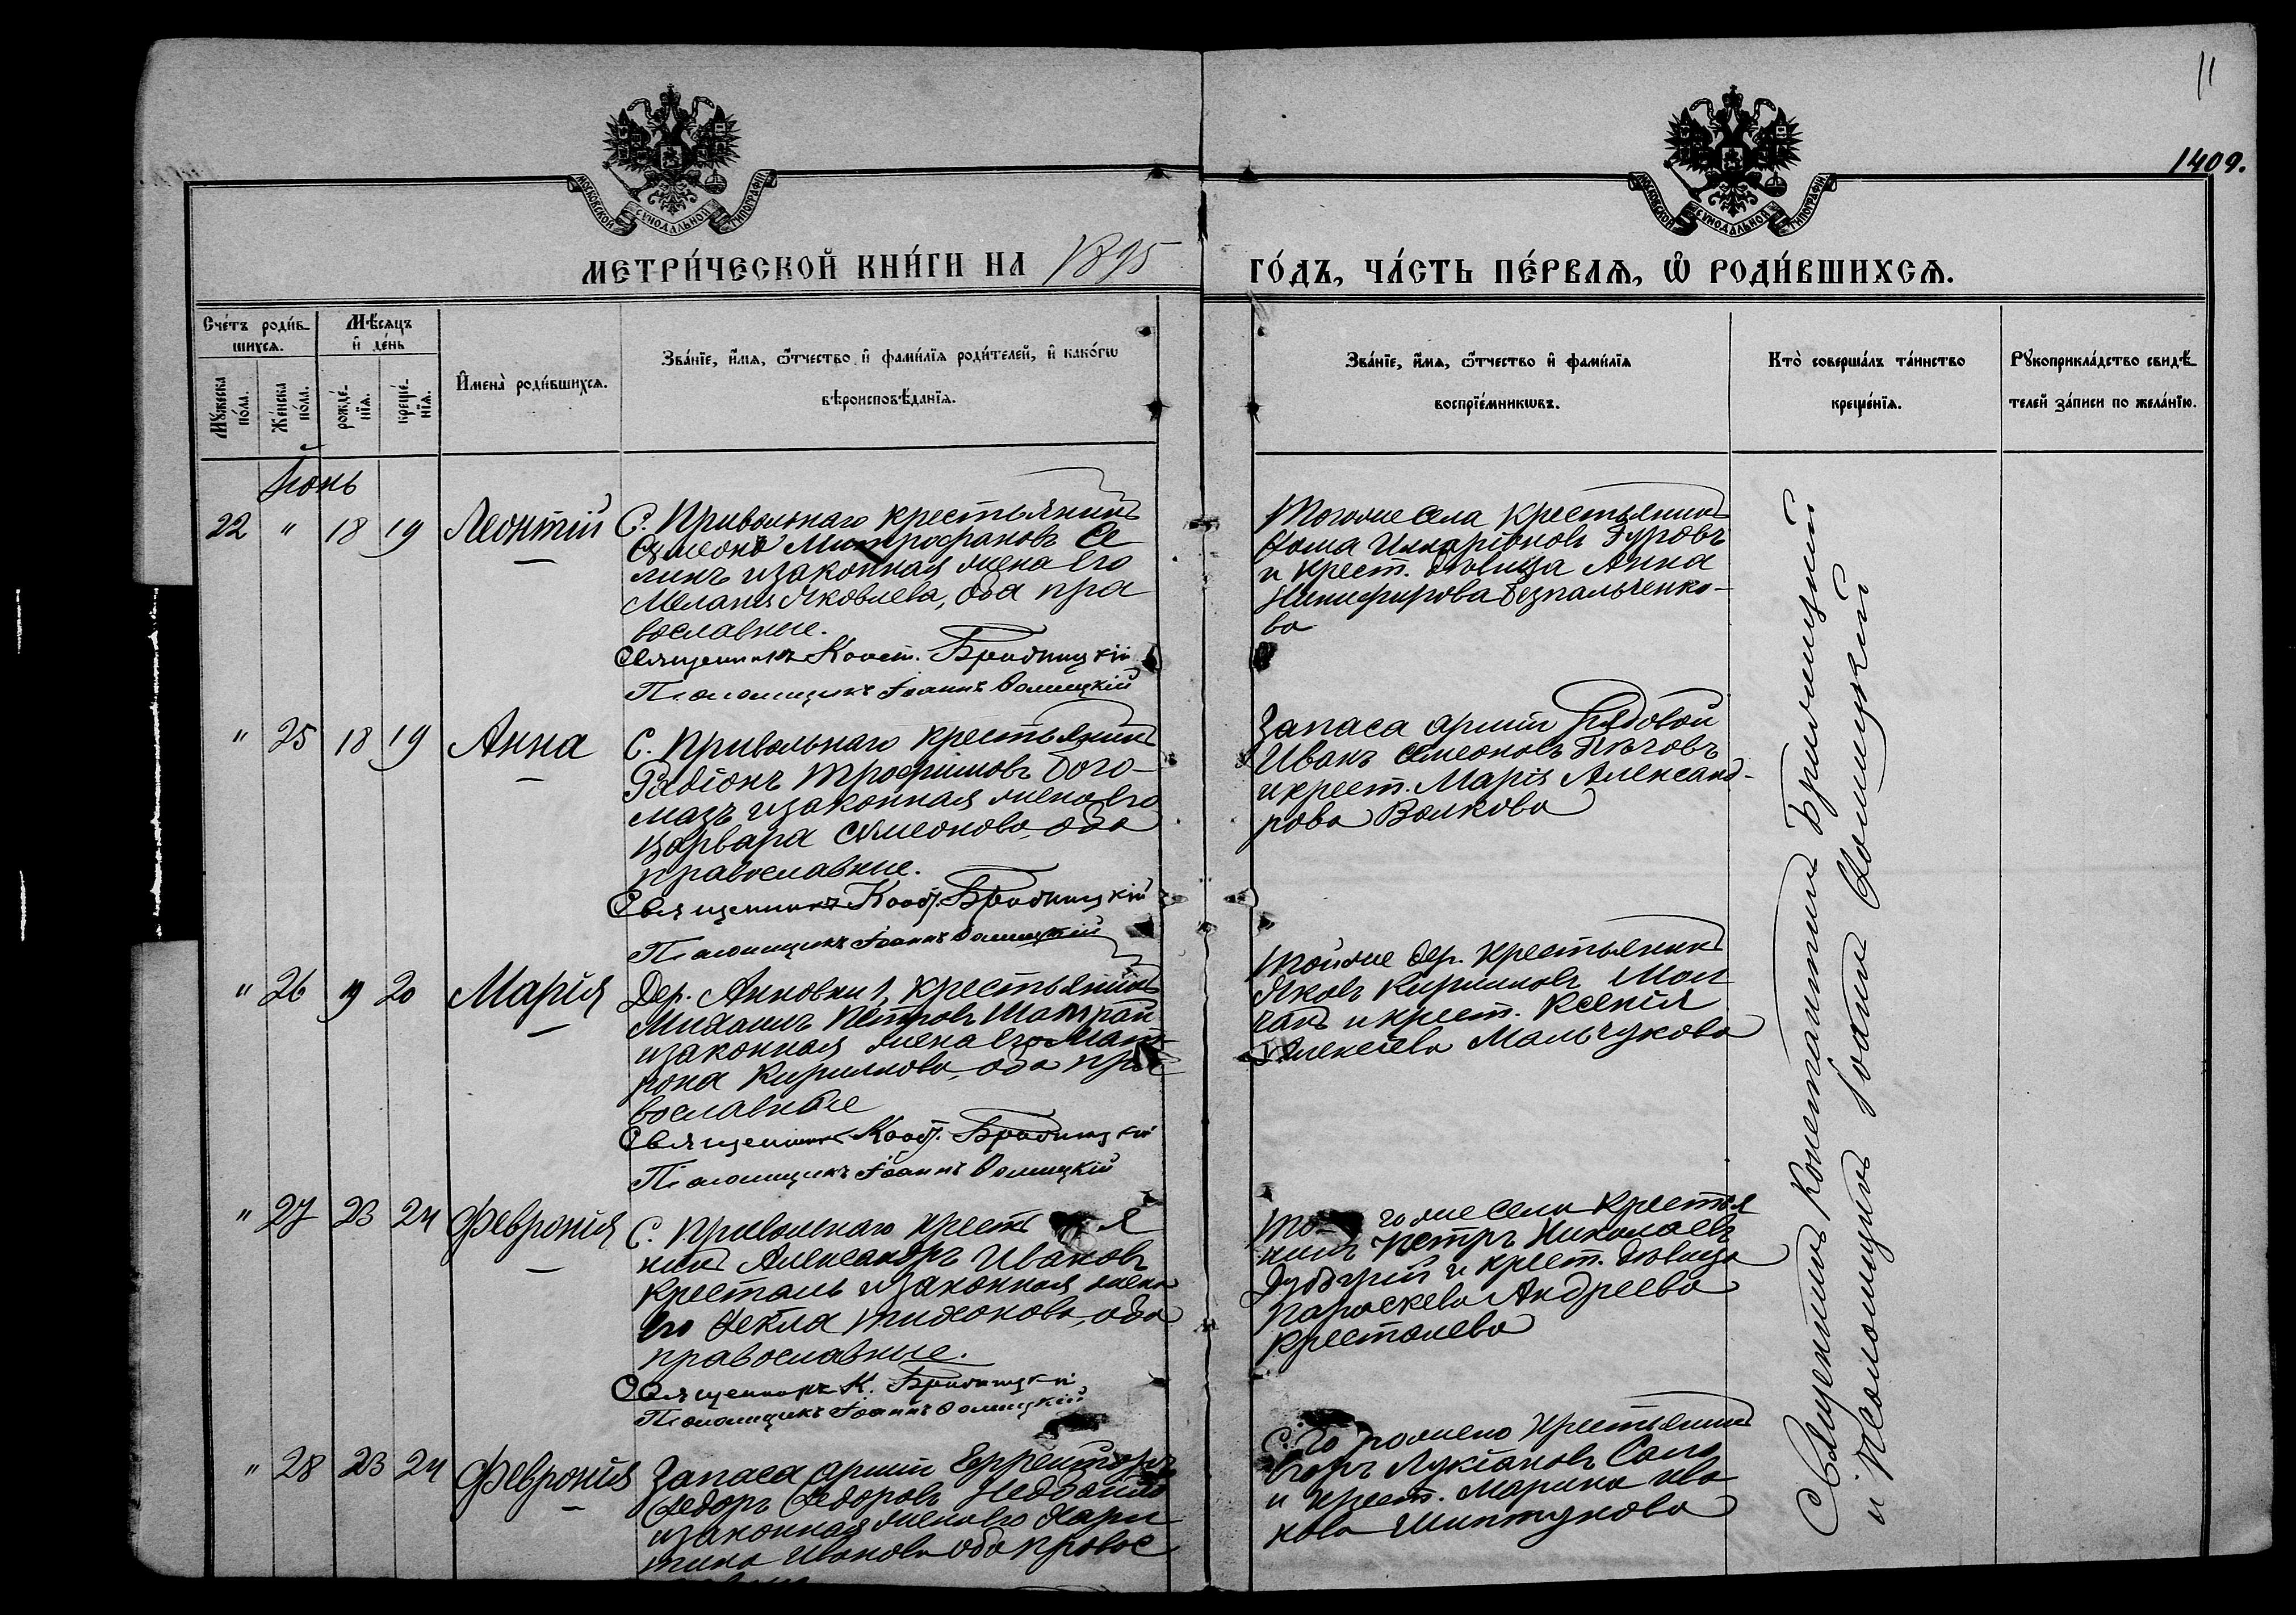 11
1409.
МОСКОВСКОЙ СѴНОДАЛЬНОЙ ТИПОГРАФІИ
МОСКОВСКОЙ СѴНОДАЛЬНОЙ ТИПОГРАФІИ
МЕТРИ́ЧЕСКОЙ КНИ́ГИ НА 1895
ГО́ДЪ, ЧА́СТЬ ПЕ́РВАѦ, Ѡ҆ РОДИ́ВШИХСѦ.
Сче́тъ роди́в-
шихсѧ.
Мꙋ́жеска
по́ла.
Же́нска
по́ла.
Мѣ́сѧцъ
и҆ де́нь
рожде́-
нїѧ.
креще́-
нїѧ.
И҆мена̀ роди́вшихсѧ.
Зва́нїе, и҆́мѧ, ѻ҆́тчество и҆ фами́лїѧ роди́телей, и҆ како́гѡ
вѣроисповѣ́данїѧ.
Зва́нїе, и҆́мѧ, ѻ҆́тчество и҆ фами́лїѧ
воспрїе́мникѡвъ.
Кто̀ соверша́лъ та́инство
креще́нїѧ.
Рꙋкоприкла́дство свидѣ́-
телей за́писи по жела́нїю.
Іюнь
22 " 18 19 Леонтій
С. Привольнаго крестьянинъ
Симеонъ Митрофановъ Се
линъ и законная жена его
Меланія Яковлева, оба пра
вославные.
Священникъ Конст. Бродницкій
Псаломщикъ Іоаннъ Домицкій
Тогоже села крестьянинъ
Ѳома Иларіоновъ Зуровъ
и крест. дѣвица Анна
Никифорова Безпальченко-
ва
" 25 18 19 Анна
С. Привольнаго крестьянинъ
Родіонъ Трофимовъ Бого-
мазъ и законная жена его
Варвара Симеонова, оба
православные.
Священникъ Конст. Бродницкій
Псаломщикъ Іоаннъ Домицкій
Запаса арміи рядовой
Иванъ Симеоновъ
и крест. Марія Александ-
рова Волкова
" 26 19 20 Марія
Дер. Анновки 1, крестьянинъ
Михаилъ Петровъ
и законная жена его Мат-
рона Кирилова, оба пра
вославные
Священникъ Конст. Бродницкій
Псаломщикъ Іоаннъ Домицкій
Тойже дер. крестьянинъ
Яковъ Кириловъ Мол
чанъ и крест. Ксенія
Алексѣева Мальчукова
" 27 23 24 Февронія
С. Привольнаго крестья
нинъ Александръ Ивановъ
Кресталь и законная жена
его Ѳекла Тихонова, оба
православные.
Священникъ К. Бродницкій
Псаломщикъ Іоаннъ Домицкій
То- гоже села крестья
нинъ Петръ Николаевъ
и крест. дѣвица
Параскева Андреева
Кресталева
" 28 23 24 Февронія
Запаса арміи Ефрейторъ
Ѳедоръ Ѳедоровъ
и законная жена его Хари
тина Иванова оба правос
крестьянинъ
Егоръ Лукіановъ
и крест. Марина Ива
нова
Священникъ Константинъ Бродницкій
и Псаломщикъ Іоаннъ Домицкій